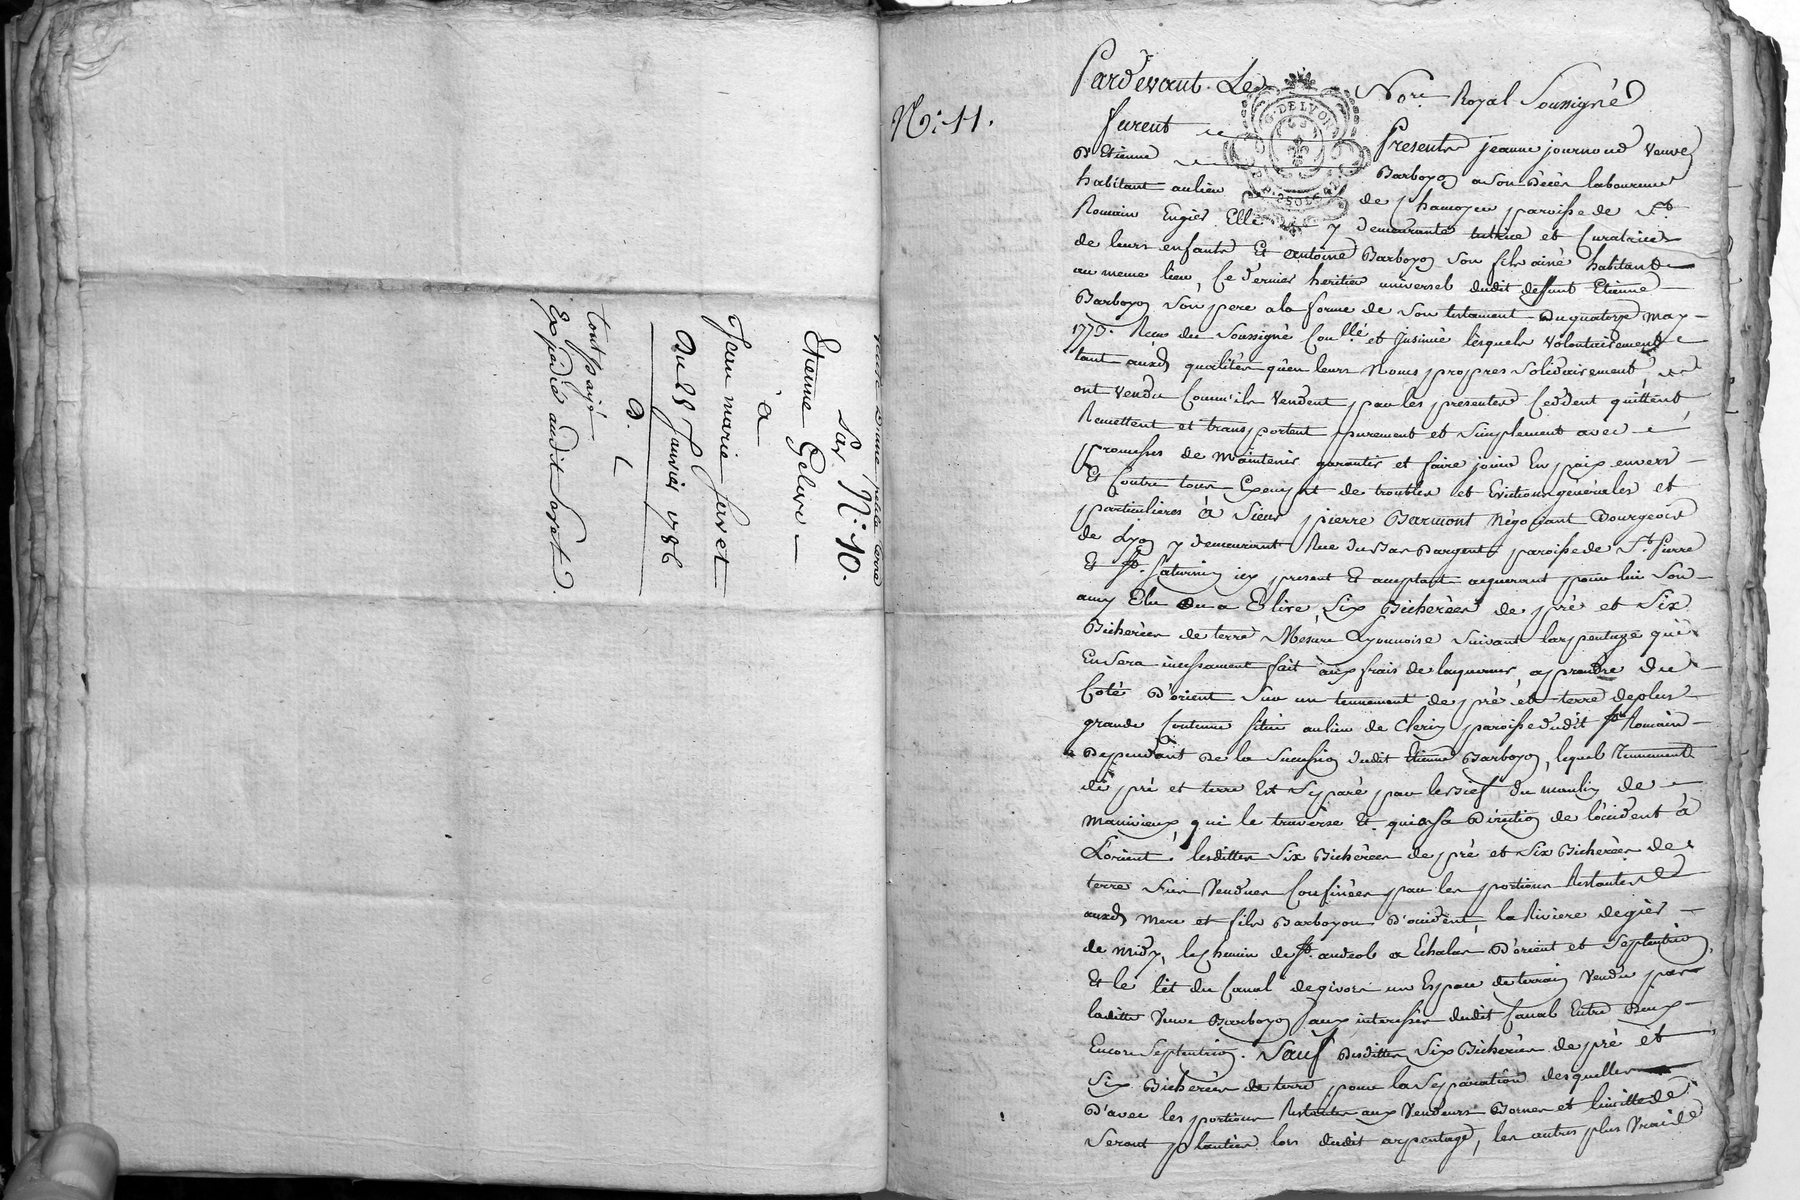 Vente d'une petite terre
Par N.º 10.
Etienne Gelive
à
Jean marie Javet
Du 28 Janvier 1786
tout payé
Expédié audit Javet
N.º 11.
G. DE LYON
Pardevant Le Nore. Royal Soussigné
furent Presents jeanne journoud veuve
d'Etienne Barboyon a son decès laboureur
habitant au lieu de Chamoyer paroisse de St.
Romain Engier Elle y demeurante tutrice et Curatrice
de leurs enfants Et antoine Barboyon son fils ainé habitant
au meme lieu, Ce dernier heritier universel dudit deffunt Etienne
Barboyon son pere a la forme de son testament du quatorze may
1773. Recu du Soussigné Conllé. et Insinué lesquels volontairement
tant auxd. qualités qu'en leurs Noms propres solidairement
ont vendu Comm'ils vendent par les presentes Ceddent quittent
Remettent et transportent purement et simplement avec
promesses de maintenir garantir et faire jouir En paix envers
Et Contre tous Exempt de troubles et Evictions generalles et
particulieres à Sieur pierre Barmont Négociant Bourgeois
de Lyon y demeurant Rue du Bas d'argent paroisse de St. Pierre
Et St. Saturnin icy present Et acceptant acquerant pour lui son
amy Elu ou a Elire, Six Bicherées de pré et Six
Bicherées de terre Mesure Lyonnoise suivant l'arpentage qui
En sera incessament fait aux frais de l'acquereur, a prendre du
Coté d'orient sur un tennement de pré et terre de plus
grande Contenue situé au lieu de Cleri paroisse dudit St. Romain
Dependant de la succession dudit Etienne Barboyon, lequel Tennement
de pré et terre Est separé par le bief du moulin de
manivieux qui le traverse Et qui a sa Direction de l'occident à
L'orient, lesdittes Six Bicherées de pré et Six Bicherées de
terre vendues Confinées par les portions Restantes
auxd. mere et fils Barboyon d'occident, la Riviere de gier
de midy, le chemin de St. andeol a Echalas d'orient et septentrion,
Et le lit du Canal de givors un Espace de terrain vendu par
laditte veuve Barboyon aux interessés dudit Canal Entre Deux
Encore Septentrion. Sauf desdittes Six Bicherées de pré et
Six Bicherées de terre, pour la Separation desquelles
D'avec les portions Restantes aux vendeurs Bornes et limittes
seront plantées lors dudit arpentage, les autres plus vrais